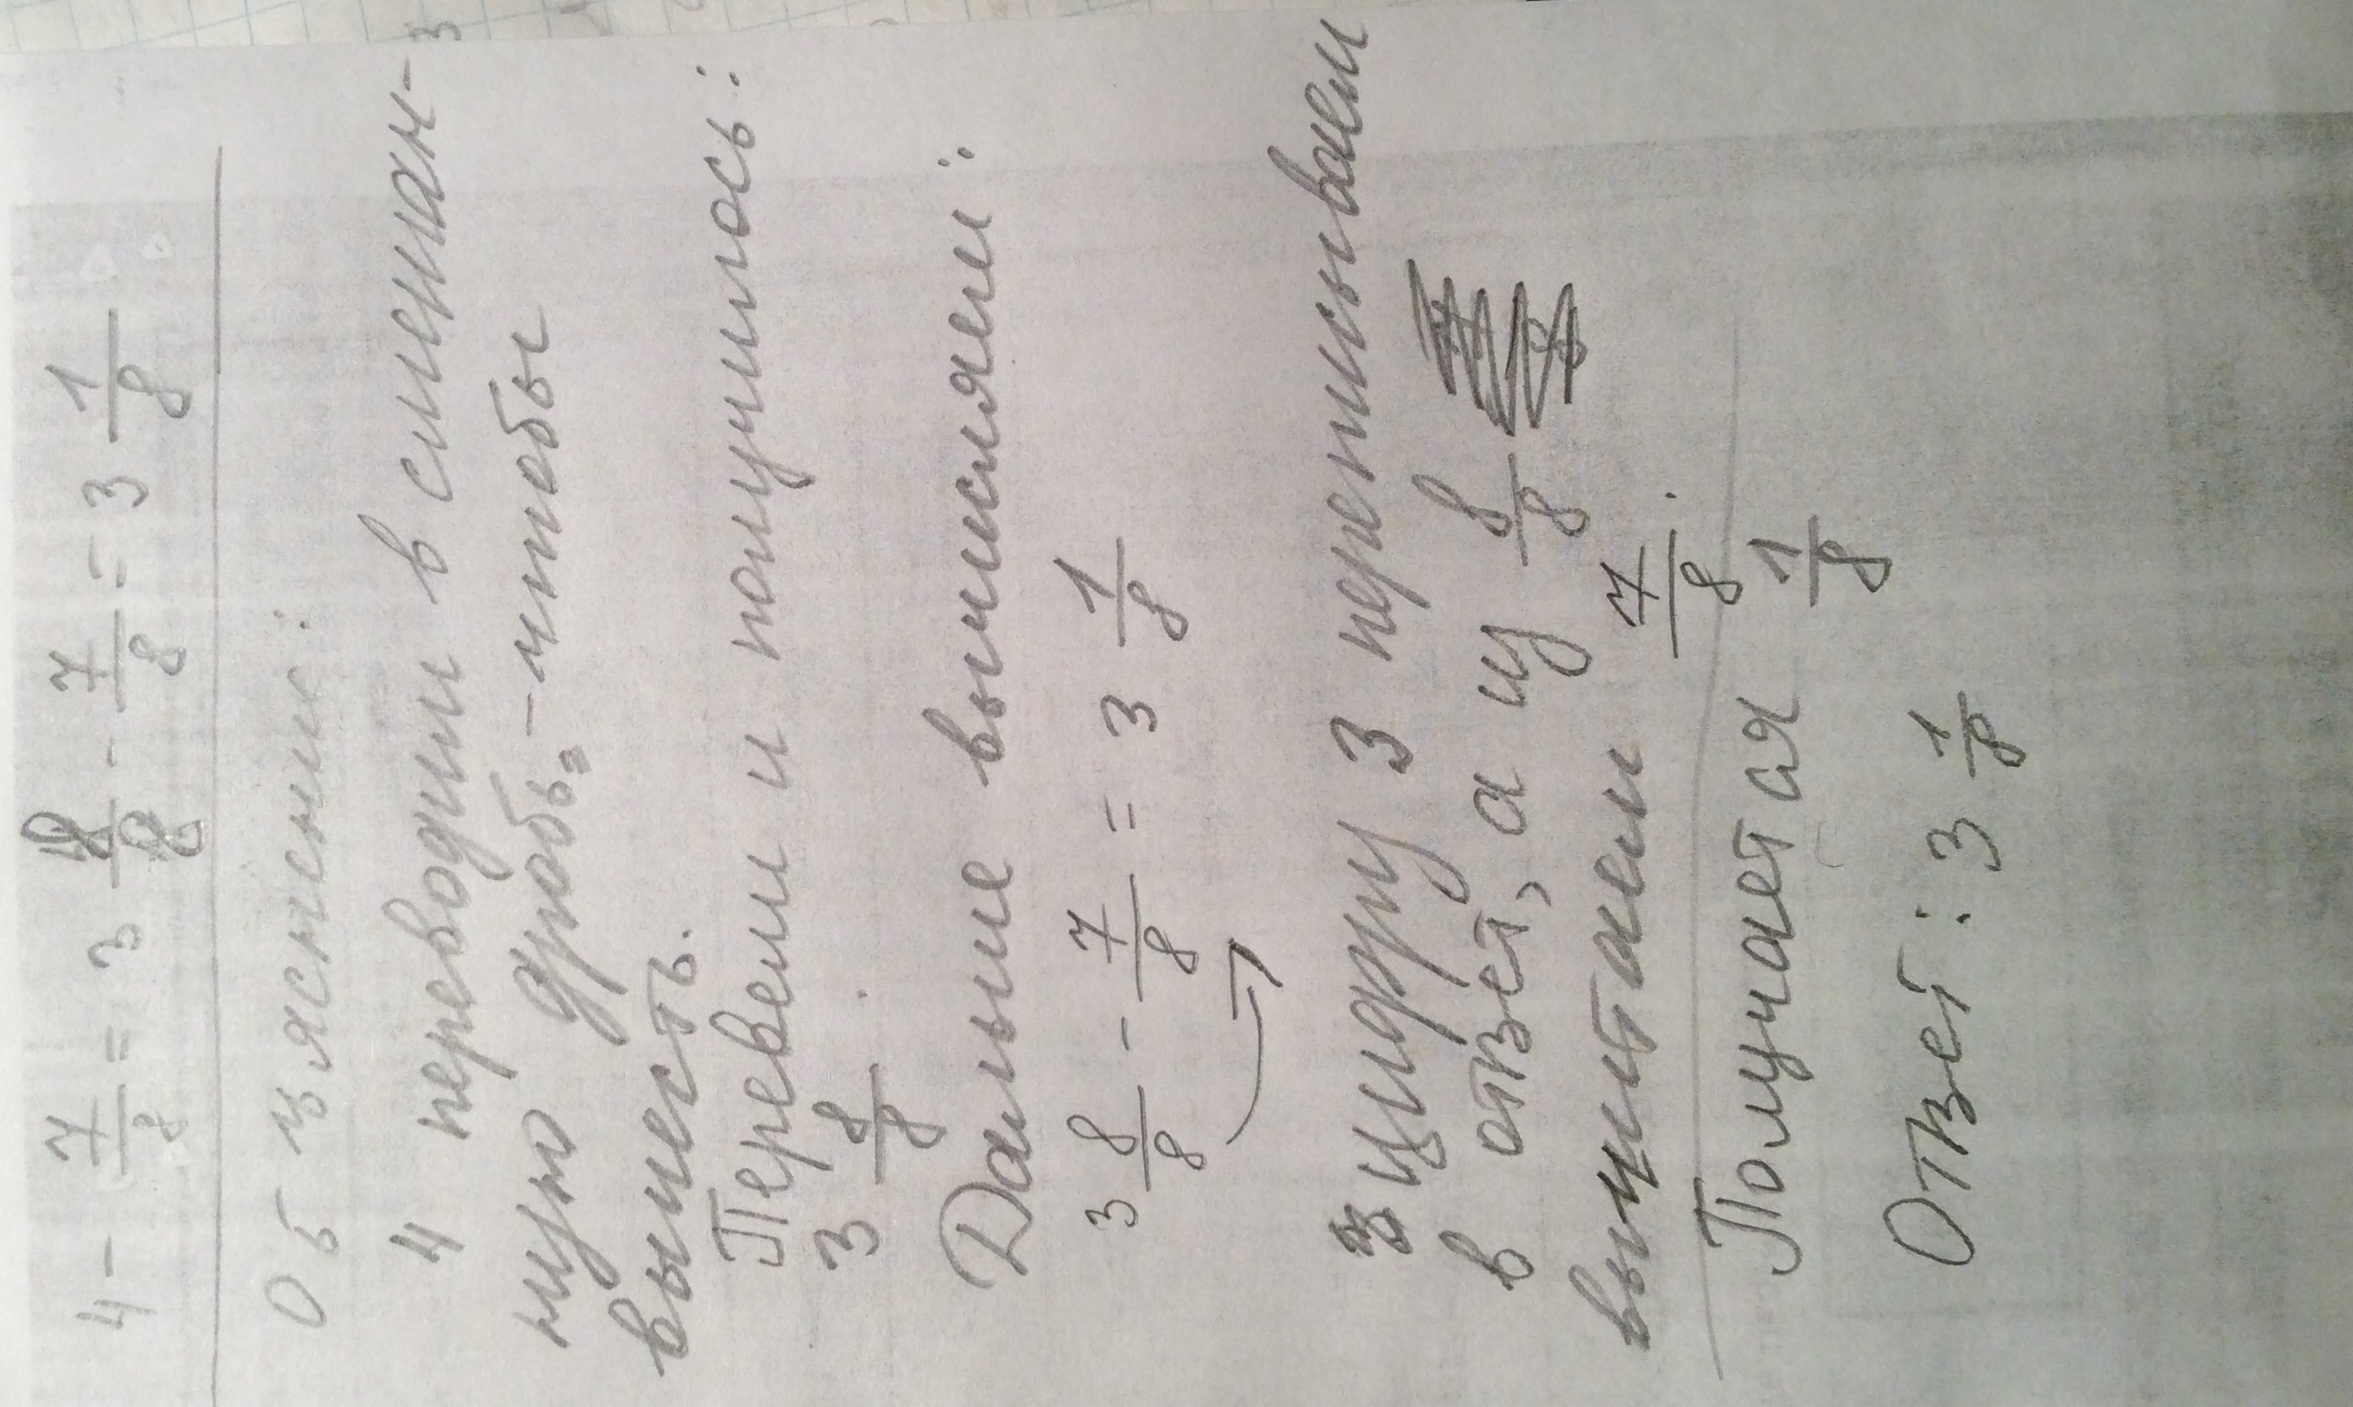 4 - 7/8 = 3 8/8 - 7/8 = 3 1/8
Обьяснение:
4 переводим в смешан-
ную дробь, - чтобы
вычесть.
Перевели и получилось:
3 8/8.
Дальше вычисляем:
3 8/8 - 7/8 = 3 1/8
цифру 3 переписываем
в ответ, а из 8/8
вычитаем 7/8.
Получается 1/8
Ответ: 3 1/8